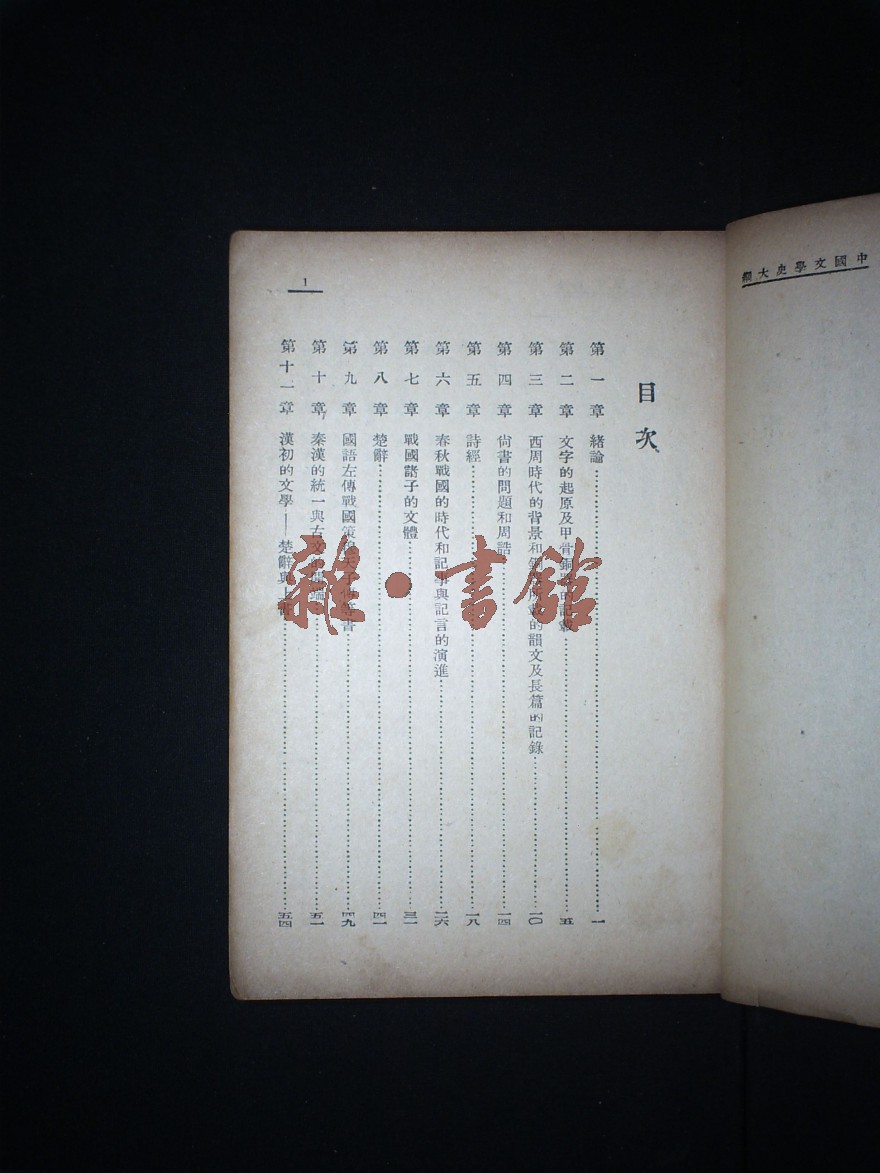 中國文學史大綱
目次
第一章 緒論……一
第二章 文字的起原及甲骨銅器的記載……五
第三章 西周時代的背景和銅器所載的韻文及長篇的記錄……一〇
第四章 尚書的問題和周誥……一四
第五章 詩經……一八
第六章 春秋戰國的時代和記事與記言的演進……二六
第七章 戰國諸子的文體……三一
第八章 楚辭……四一
第九章 國語左傳戰國策穆天子傳等書……四九
第十章 秦漢的統一與古文的端……五一
第十一章 漢初的文學——楚辭與上書……五四
1
雜·書館